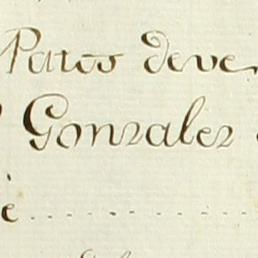 Patos de ve
Gonzalez
è